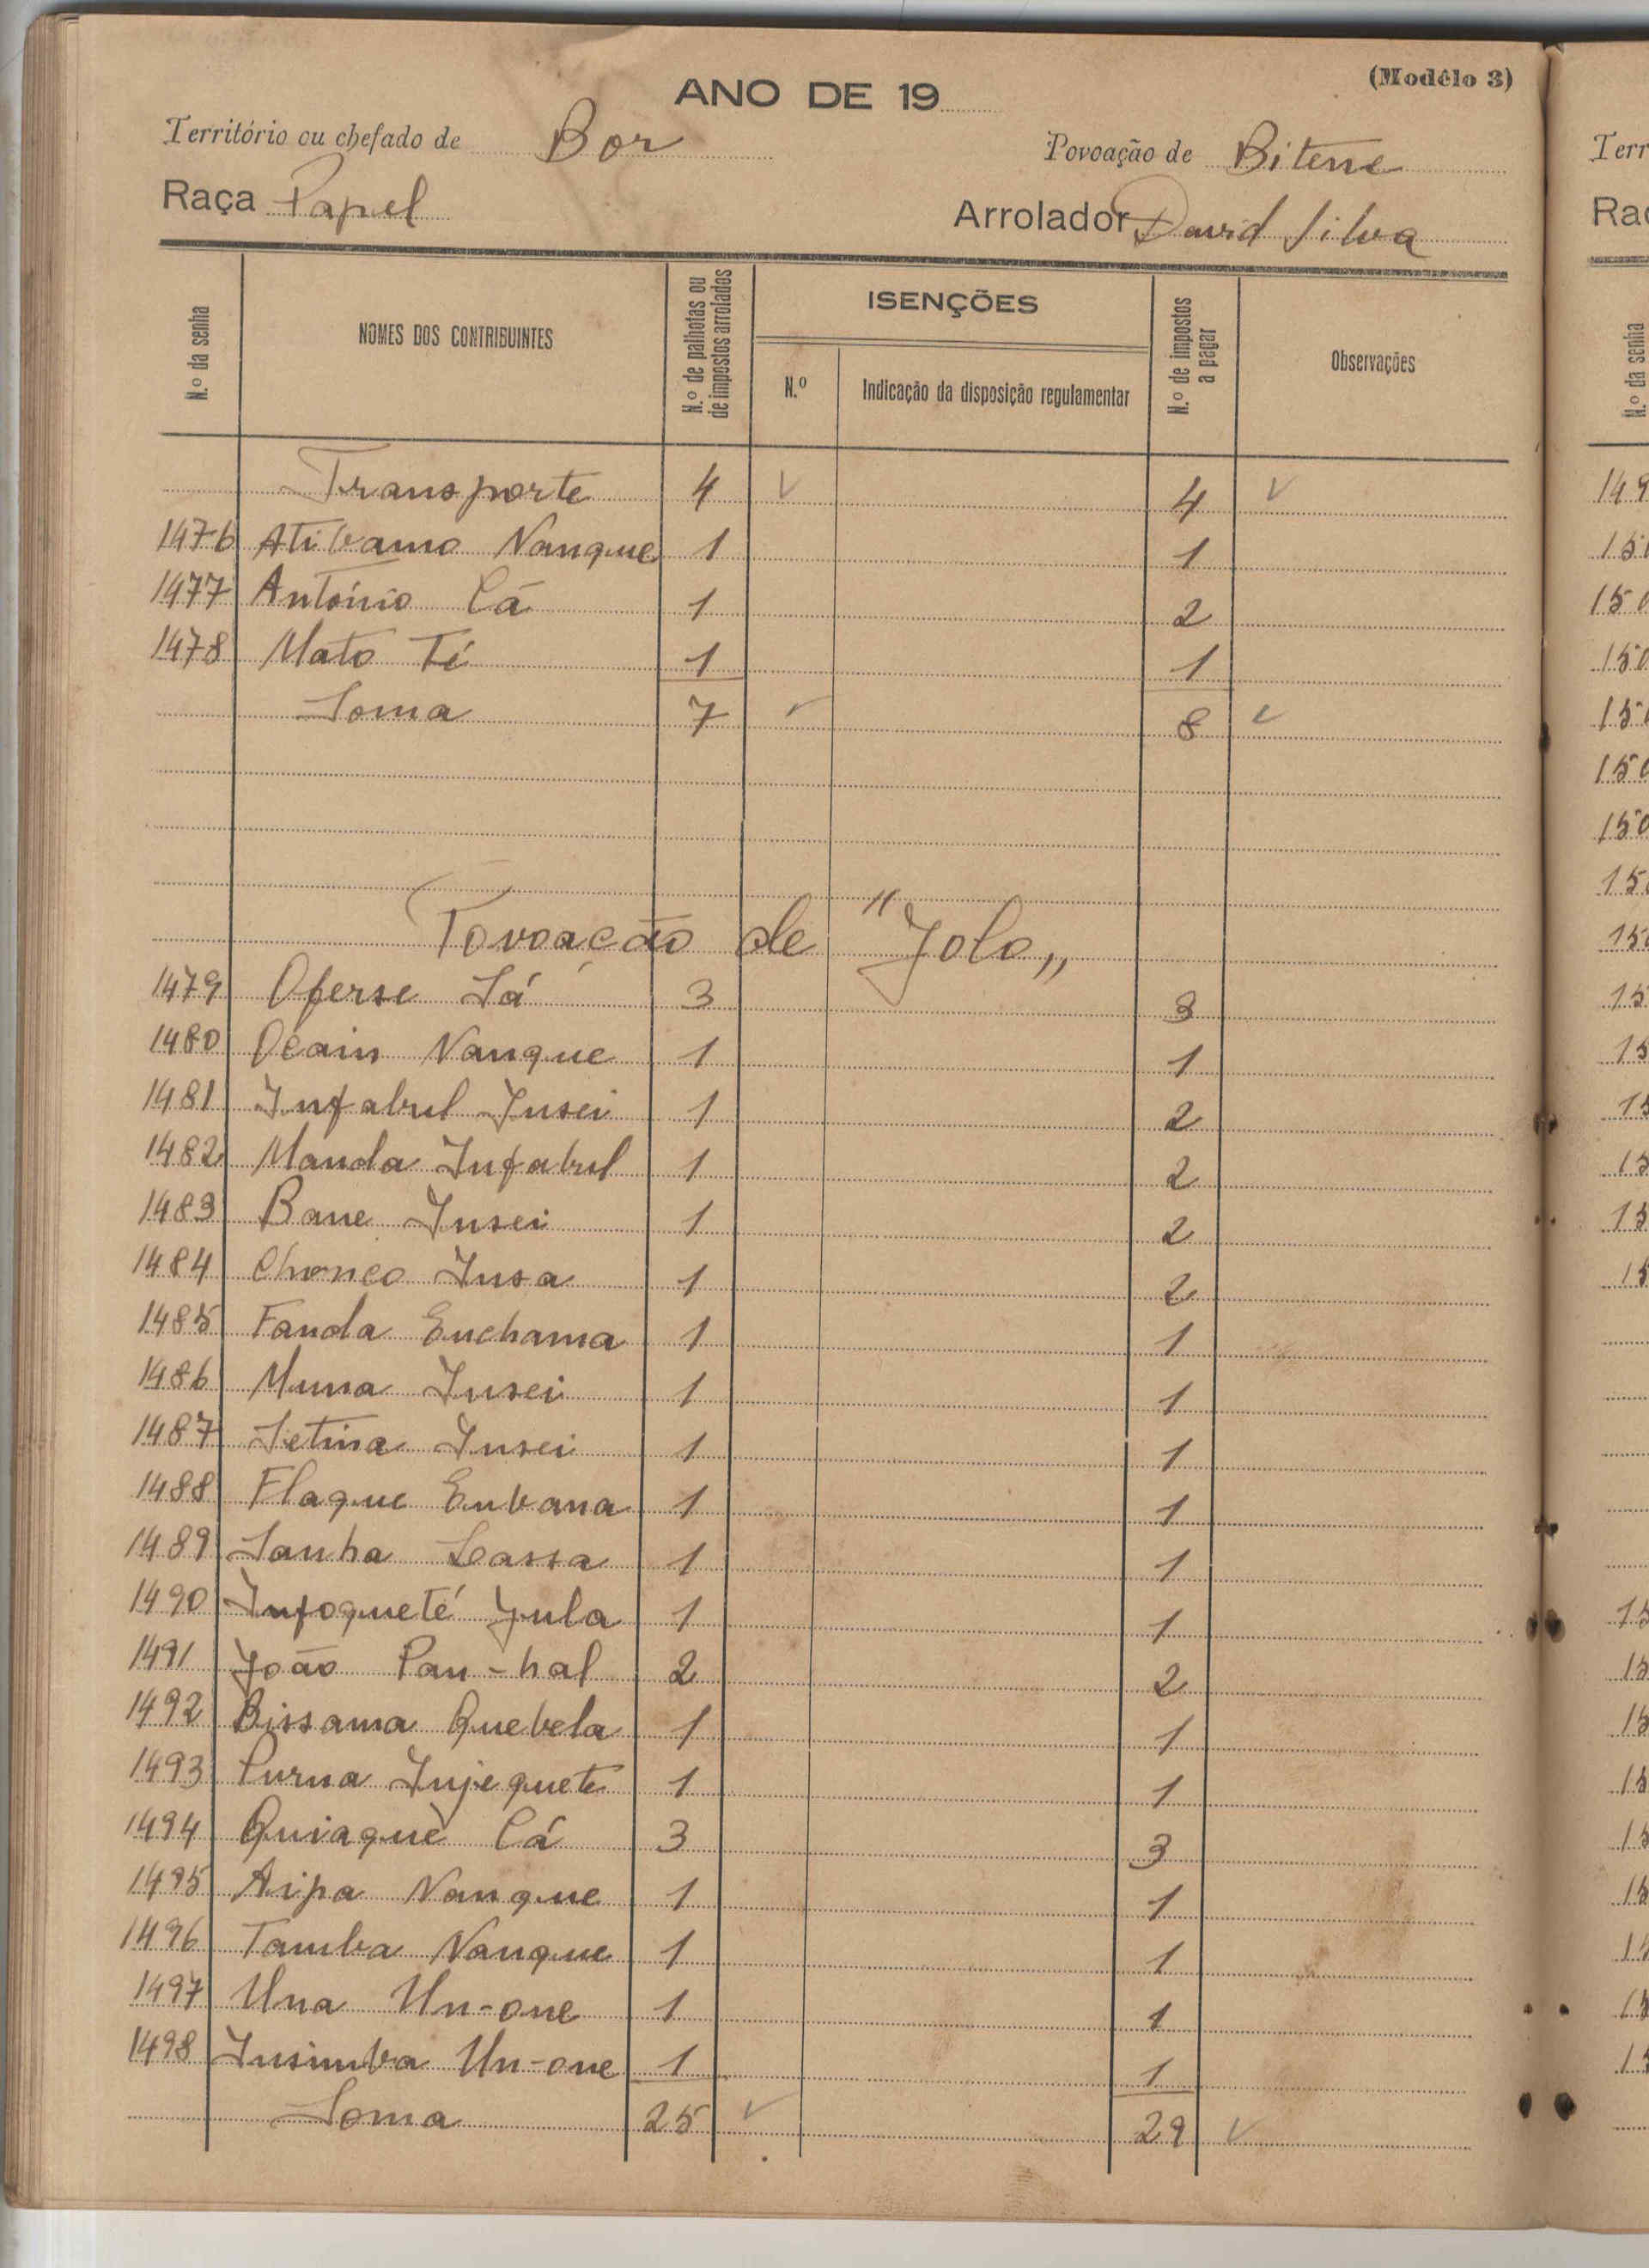 (Modêlo 3)
ANO DE 19
Território ou chefado de Bor Povoação de Bitene
Raça Papel Arrolador David Silva
N.º da senha NOMES DOS CONTRIBUINTES N.º de palhotas ou de impostos arrolados ISENÇÕES N.º Indicação da disposição regulamentar N.º de impostos a pagar Observações
Transporte 4 4
1476 Nanque 1 1
1477 António Cá 1 2
1478 Mato Té 1 1
Soma 7 8
Povoação de "Jolo„
1479 Oferse Sá 3 3
1480 Ocain Nanque 1 1
1481 Infabul Insei 1 2
1482 Manda Infabul 1 2
1483 Bane Insei 1 2
1484 Chonco Insa 1 2
1485 Fanda Enchama 1 1
1486 Muma Insei 1 1
1487 Setina Insei 1 1
1488 Flaque Enbana 1 1
1489 Sanha Lassa 1 1
1490 Infoqueté Jula 1 1
1491 João Pan-hal 2 2
1492 Bissama Quebela 1 1
1493 Purna Injequete 1 1
1494 Quiaquè Cá 3 3
1495 Aipa Nanque 1 1
1496 Tamba Nanque 1 1
1497 Una Un-one 1 1
1498 Insimba Un-one 1 1
Soma 25 29